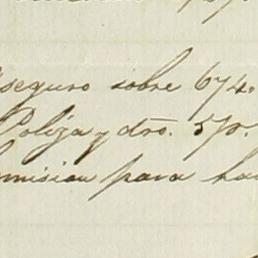 seguro sobre 674.
Poliza y dro. 5/0.
omision para ha